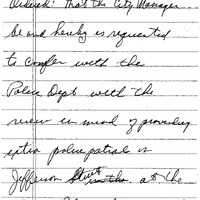 Ordered: That the City Manager
be and hereby is requested
to confer with the
Police Dept with the
view in mind of providing
extra police patrols on
Jefferson Street in the. at the